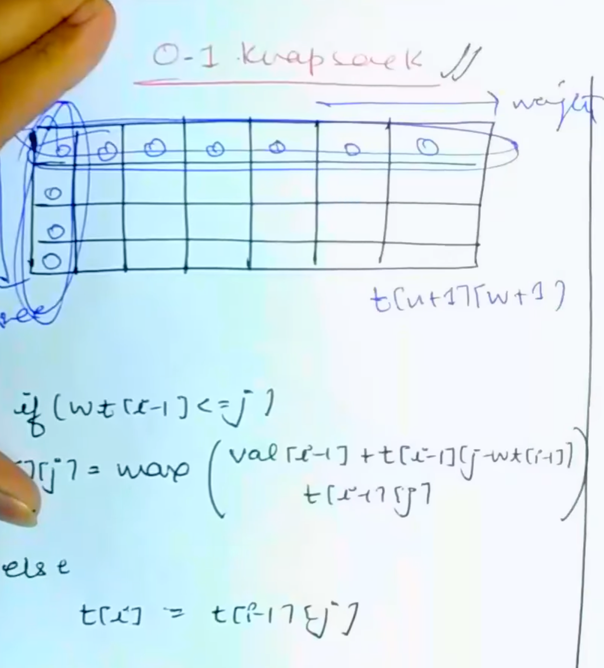 0-1 Knapsack
weight
0 0 0 0 0 0 0
0
0
0
t[n+1][w+1]
if (wt[i-1] <= j)
][j] = max ( val[i-1] + t[i-1][j-wt[i-1]]
t[i-1][j] )
else
t[i] = t[i-1][j]